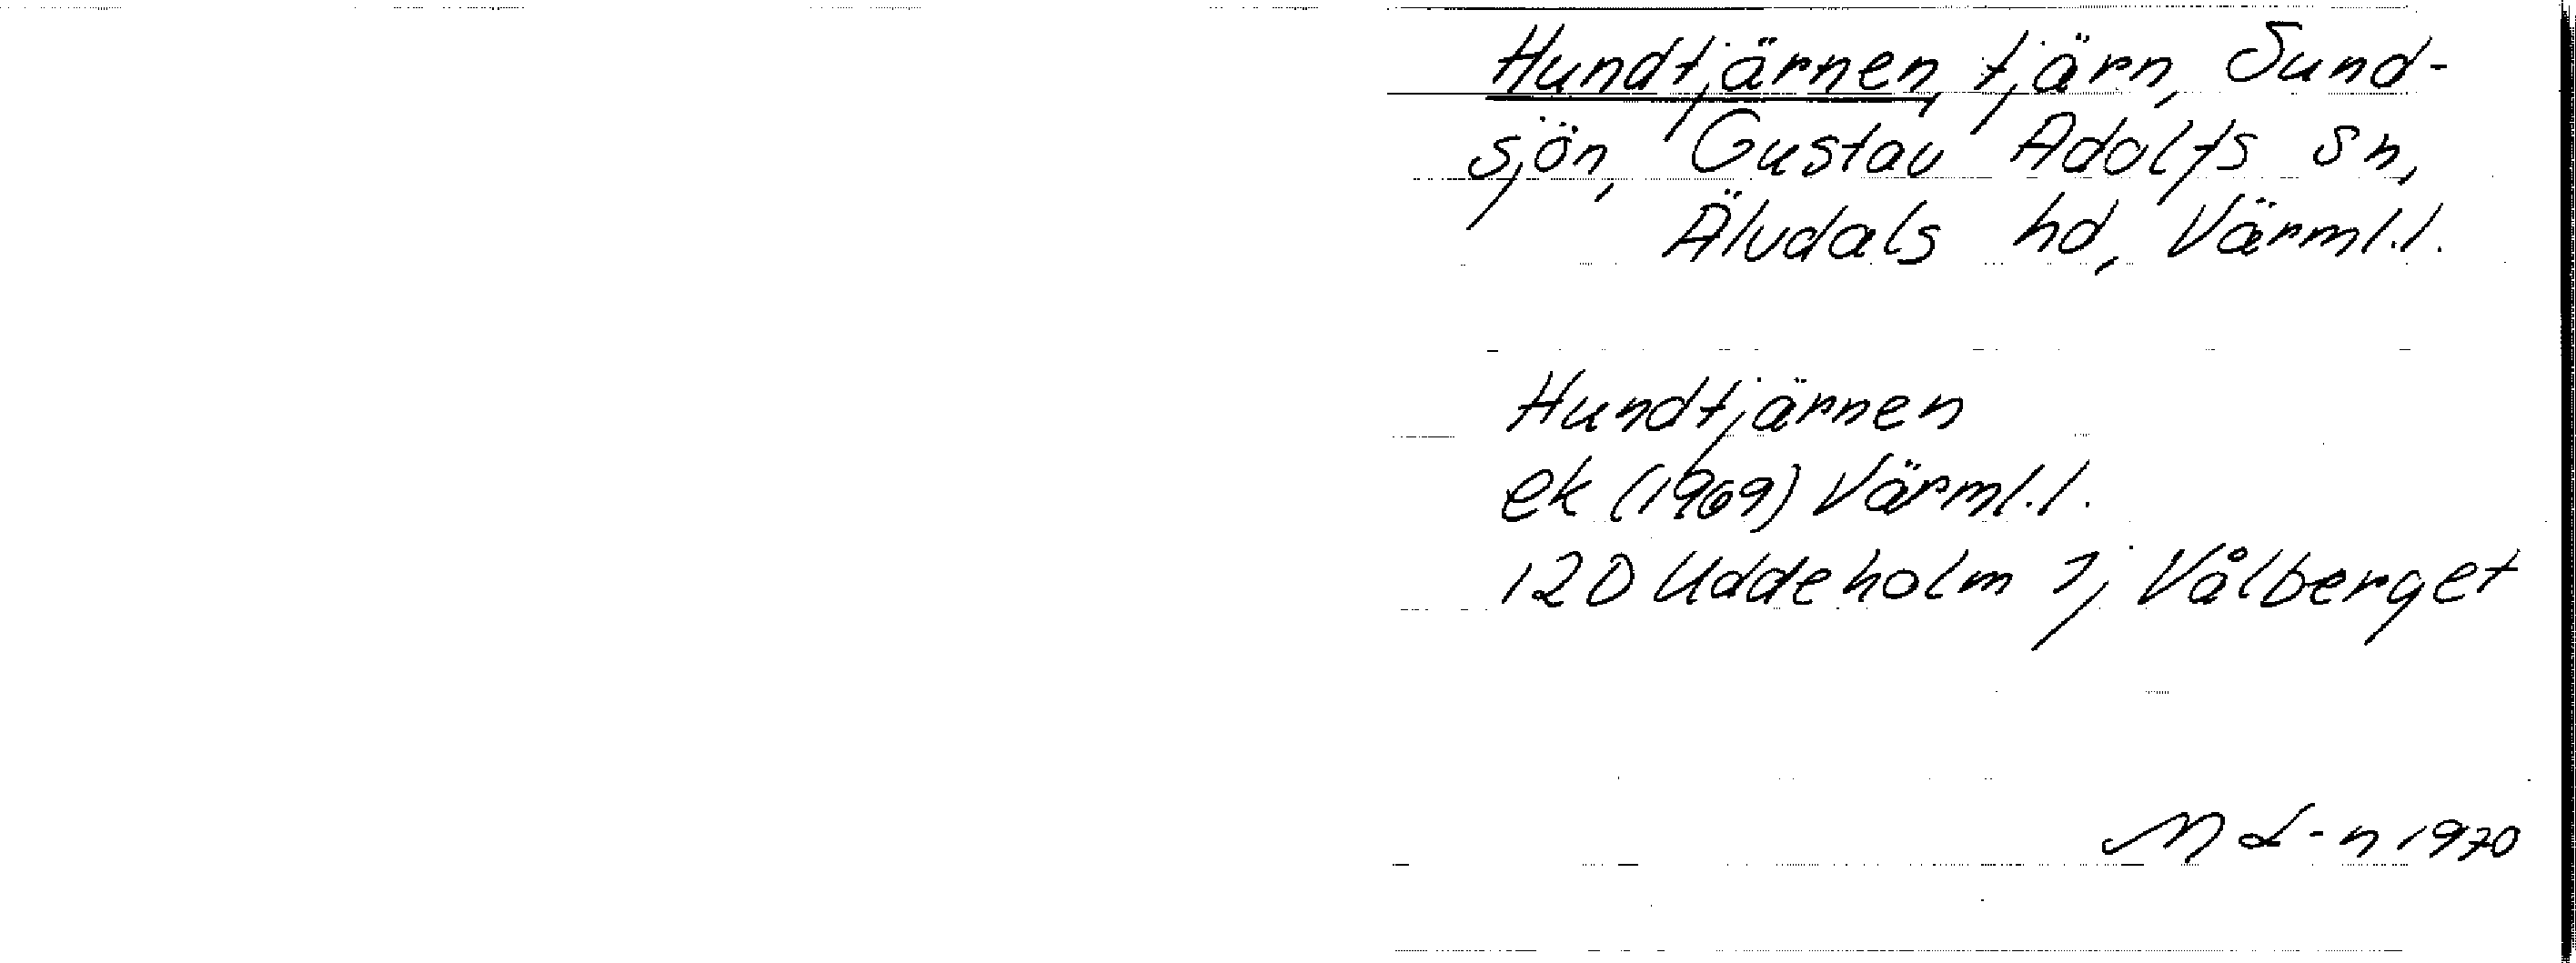 Hundtjärnen, tjärn, Sund-
sjön, Gustav Adolfs sn,
Älvdals hd, Värml.l.
Hundtjärnen
ek (1969) Värml.l.
12D Uddeholm 1j Vålberget
M L-n 1970